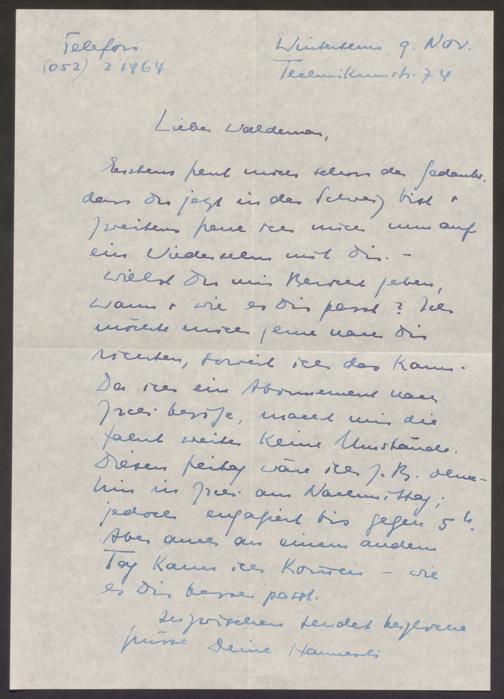 Telefon
(052) 2 1964
Winterthur 9. Nov.
Technikumstr. 74
Lieber Waldemar,
Erstens freut mich schon der Gedanke,
dass Du jetzt in der Schweiz bist &
zweitens freue ich mich nun auf
ein Wiedersehn mit Dir. –
Willst Du mir Bericht geben,
wann & wie es Dir passt? Ich
möchte mich gerne nach Dir
richten, soweit ich das kann.
Da ich ein Abonnement nach
Zrch besitze, macht mir die
Fahrt weiter keine Umstände.
Diesen Freitag wäre ich z. B. ohne-
hin in Zrch am Nachmittag;
jedoch engagiert bis gegen 5 h.
Aber auch an einem andern
Tag kann ich kommen – wie
es Dir besser passt.
Inzwischen sendet herzliche
Grüsse Deine